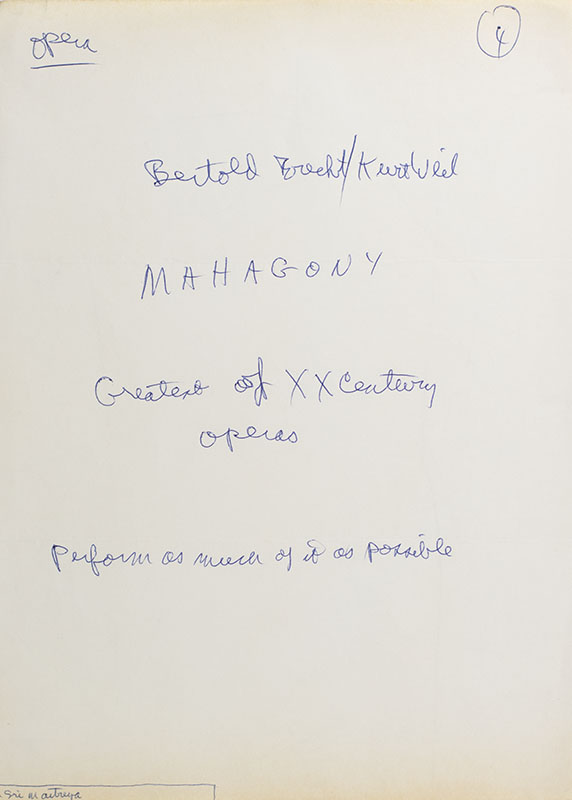 opera
4
Bertold Brecht/Kurt Weil
MAHAGONY
Greatest of XX Century
operas
Perform as much of it as possible
Sri Maitreya